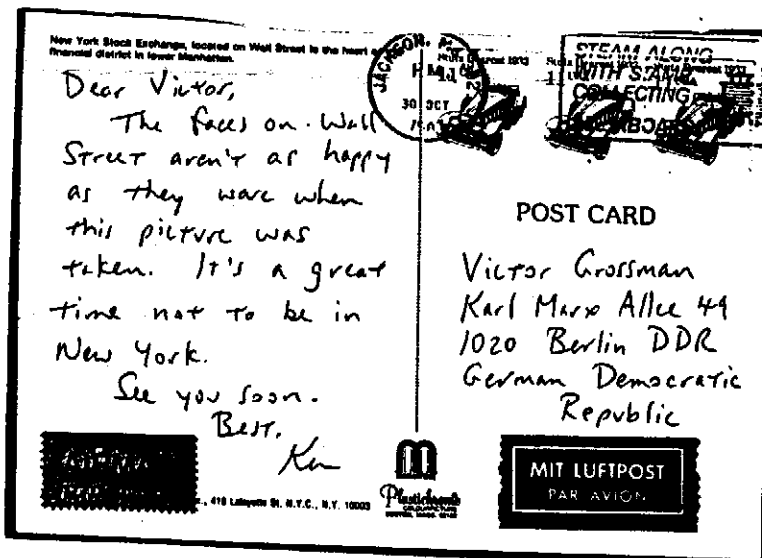 New York Stock Exchange, located on Wall Street is the heart
financial district in lower Manhattan.
Dear Victor,
The faces on Wall
Street aren't as happy
as they ware when
this picture was
taken. It's a great
time not to be in
New York.
See you soon.
Best,
Ken
419 Lafayette St. N.Y.C., N.Y. 10003
JACKSON,
30 OCT
STEAM ALONG
WITH STAMP
COLLECTING
POST CARD
Victor Grossman
Karl Marx Allee 49
1020 Berlin DDR
German Democratic
Republic
m
Plastichrome
MIT LUFTPOST
PAR AVION